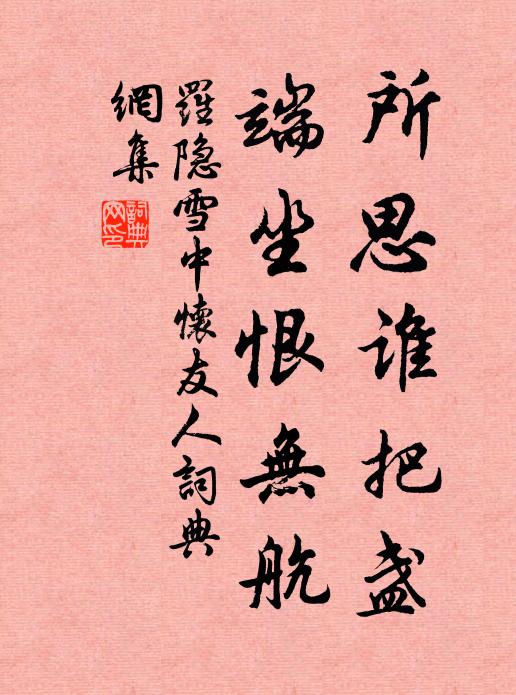 所思谁把盏
端坐恨無航
羅隐雪中懷友人詞典
網集
詞典网印